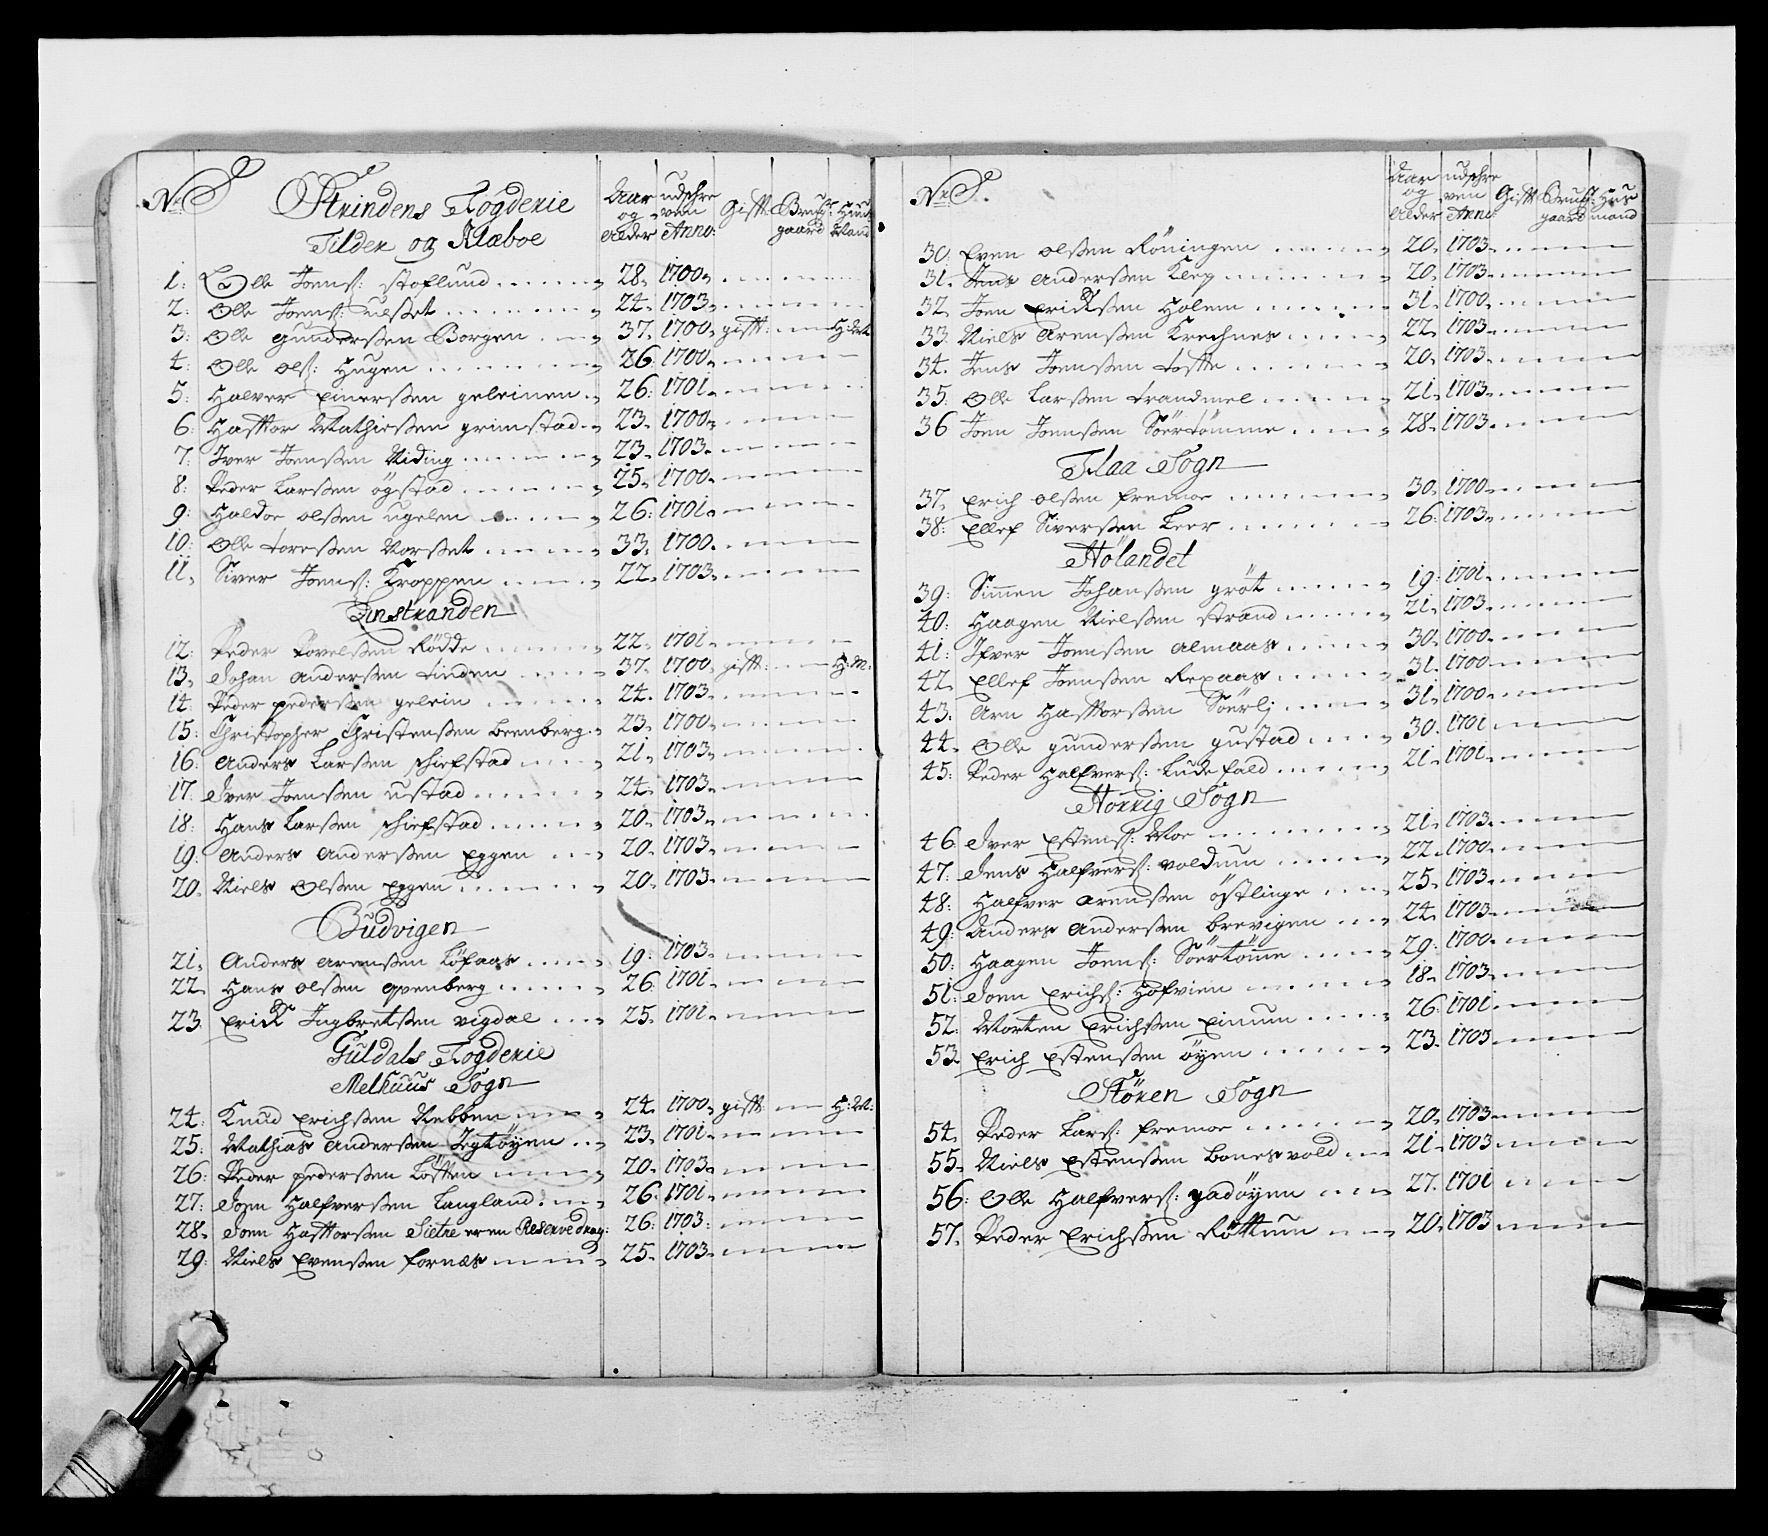 No
Strindens Fogderie
Tilder og Klæboe
Aar og Alder
udschreven Anno:
Gift:
Brug: gaard
Huus Mand
1: Olle Joens: stoflund 28. 1700.
2: Olle Joens: ulset 24. 1703.
3: Olle gunderssen Borgen 37. 1700. gift: H: Md
4: Olle Ols: Hugen 26. 1700.
5: Halver einerssen geleinen 26: 1701.
6: Hafftor Mathiessen grimstad 23. 1700.
7: Iver Joenssen Viding 23. 1703.
8: Peder Larssen øgstad 25. 1700.
9: Haldor olssen ugelen 26: 1701.
10: Olle toressen Norsset 33. 1700.
11. Siver Joens: Kroppen 22. 1703.
Øinstranden
12: Peder Povelssen Rødde 22. 1701.
13. Johan anderssen tinden 37. 1700. gift: H: M:
14. Peder pederssen gelein 24. 1703.
15: Christopher Christenssen beenberg 23. 1700.
16: anders Larssen schiefstad 21. 1703.
17: Iver Joenssen ustad 24. 1703.
18: Hans Larssen schiefstad 20. 1703.
19: Anders Anderssen Eggen 20. 1703.
20. Niels Olssen Eggen 20. 1703.
Budvigen
21. Anders arenssen Løfaas 19: 1703.
22. Hans olssen qvenberg 26: 1701.
23. Erick Ingbretssen vigdal 25. 1701.
Guldals Fogderie
Melhuus Sogn
24: Knud Erichssen Nebben 24. 1700. gift H: M:
25: Mathias Anderssen Igtøyen 23. 1701.
26: Peder pederssen Løften 20. 1703.
27: Joen Halfverssen Langland 26. 1701.
28. Joen Hafftorssen Sietne er en Reserve drag: 26: 1703.
29: Niels Evenssen fornæs 25. 1703.
No
Aar og Alder
udschreven Anno:
Gift
Brug: gaard
Huus mand
30: Even olssen Røningen 20. 1703.
31. Jens Anderssen Kleg 20. 1703.
32. Joen Erickssen Holem 31. 1700.
33. Niels Arenssen Krechnes 22. 1703.
34. Jens Joenssen tofte 20. 1703.
35: Olle Larssen trandmel 21. 1703.
36 Joen Joenssen Søertømme 28. 1703.
Flaa Sogn
37. Erich olssen fremoe 30. 1700.
38: Ellef Siverssen Leer 26: 1703.
Hølandet
39: Simen Johanssen grøt 19: 1701.
40: Haagen Nielssen strand 21. 1703.
41: Ifver Joenssen almaas 30. 1700.
42. Ellef Joenssen Rexaas 31. 1700.
43: Arn Hafftorssen Søerlj 31. 1700.
44. Olle gunderssen gustad 30. 1701.
45: Peder Halfvers: Ludefald 21. 1701.
Horrig Sogn
46. Iver Estens: Moe 21. 1703.
47. Jens Halfvers: voldum 22. 1700.
48: Halfver arenssen østlinge 25. 1703.
49: Anders Anderssen brevigen 24. 1703.
50: Haagen Joens: Søertømme 29: 1700.
51: Joen Erichs: Hofvien 18. 1703.
52: Morten Erichssen Einum 26: 1701.
53. Erich Estenssen øyen 23. 1703.
Støren Sogn
54. Peder Lars: fremoe 20. 1703.
55. Niels Estenssen bonesvold 21. 1703.
56: Olle Halfvers: gadøyen 27. 1701.
57. Peder Erichssen Røttum 20. 1703.